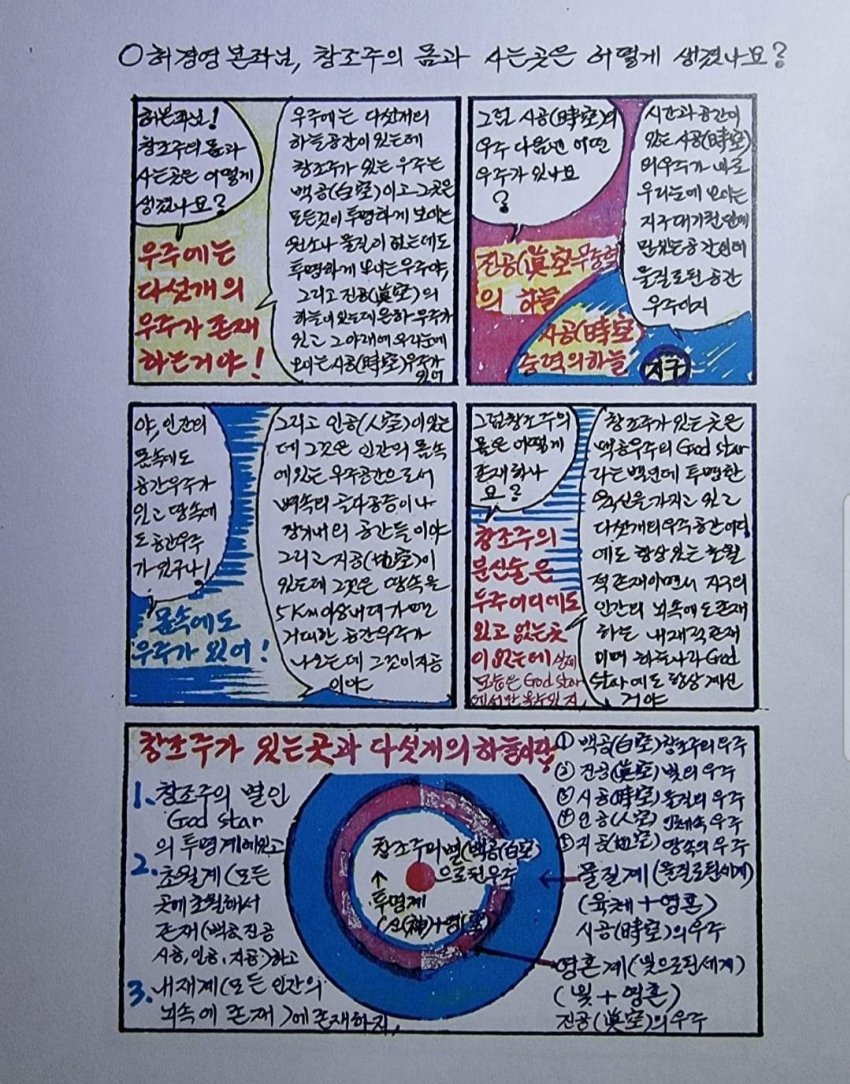 ○허경영 본좌님, 창조주의 몸과 사는곳은 어떻게 생겼나요?
허본좌님!
창조주의 몸과
사는곳은 어떻게
생겼나요?
우주에는
다섯개의
우주가 존재
하는거야!
우주에는 다섯개의
하늘공간이 있는데
창조주가 있는 우주는
백공(白空)이고 그곳은
모든것이 투명하게 보이는
원소나 물질이 없는데도
투명하게 보이는 우주야,
그리고 진공(眞空)의
하늘이 있는데 은하우주가
있고 그 아래에 우리눈에
보이는 시공(時空)우주가
있어
그럼 시공(時空)의
우주 다음엔 어떤
우주가 있나요
?
진공(眞空)무중력
의 하늘
시공(時空)
중력의하늘
지구
시간과 공간이
있는 시공(時空)
의 우주가 바로
우리눈에 보이는
지구 대기권 안에
만 있는 공간인데
물질로된 공간
우주이지
야, 인간의
몸속에도
공간우주가
있고 땅속에
도 공간우주
가 있구나!
몸속에도
우주가 있어!
그리고 인공(人空)이 있는
데 그것은 인간의 몸속
에 있는 우주공간으로서
뼈속의 골다공증이나
장기내의 공간들이야
그리고 지공(地空)이
있는데 그것은 땅속을
5Km이상 내려가면
거대한 공간우주가
나오는데 그것이 지공
이야
그럼 창조주의
몸은 어떻게
존재하나
요?
창조주의
분신술은
우주어디에도
있고 없는곳
이 없는데 실제
모습은 God star
에서만 볼수있지.
창조주가 있는 곳은
백공우주의 God star
라는 별인데 투명한
육신을 가지고 있고
다섯개의 우주공간 어디
에도 항상 있는 초월
적 존재이면서 지구의
인간의 뇌속에도 존재
하는 내재적 존재
이며 하늘나라 God
star에도 항상 계신
거야
창조주가 있는곳과 다섯개의 하늘이란
1. 창조주의 별인
God star
의 투명계에 있고
2. 초월계(모든
곳에 초월해서
존재(백공.진공
시공, 인공, 지공.)하고
3. 내재계(모든 인간의
뇌속에 존재)에 존재하지.
창조주의 별(백공(白空)
으로된 우주
↑
투명계
(신(神)+영(靈)
① 백공(白空)창조주의 우주
② 진공(眞空) 빛의 우주
③ 시공(時空) 물질의 우주
④ 인공(人空) 인체속 우주
⑤ 지공(地空) 땅속의 우주
물질계(물질로된세계)
(육체+영혼)
시공(時空)의 우주
영혼계(빛으로된세계)
(빛+영혼)
진공(眞空)의 우주